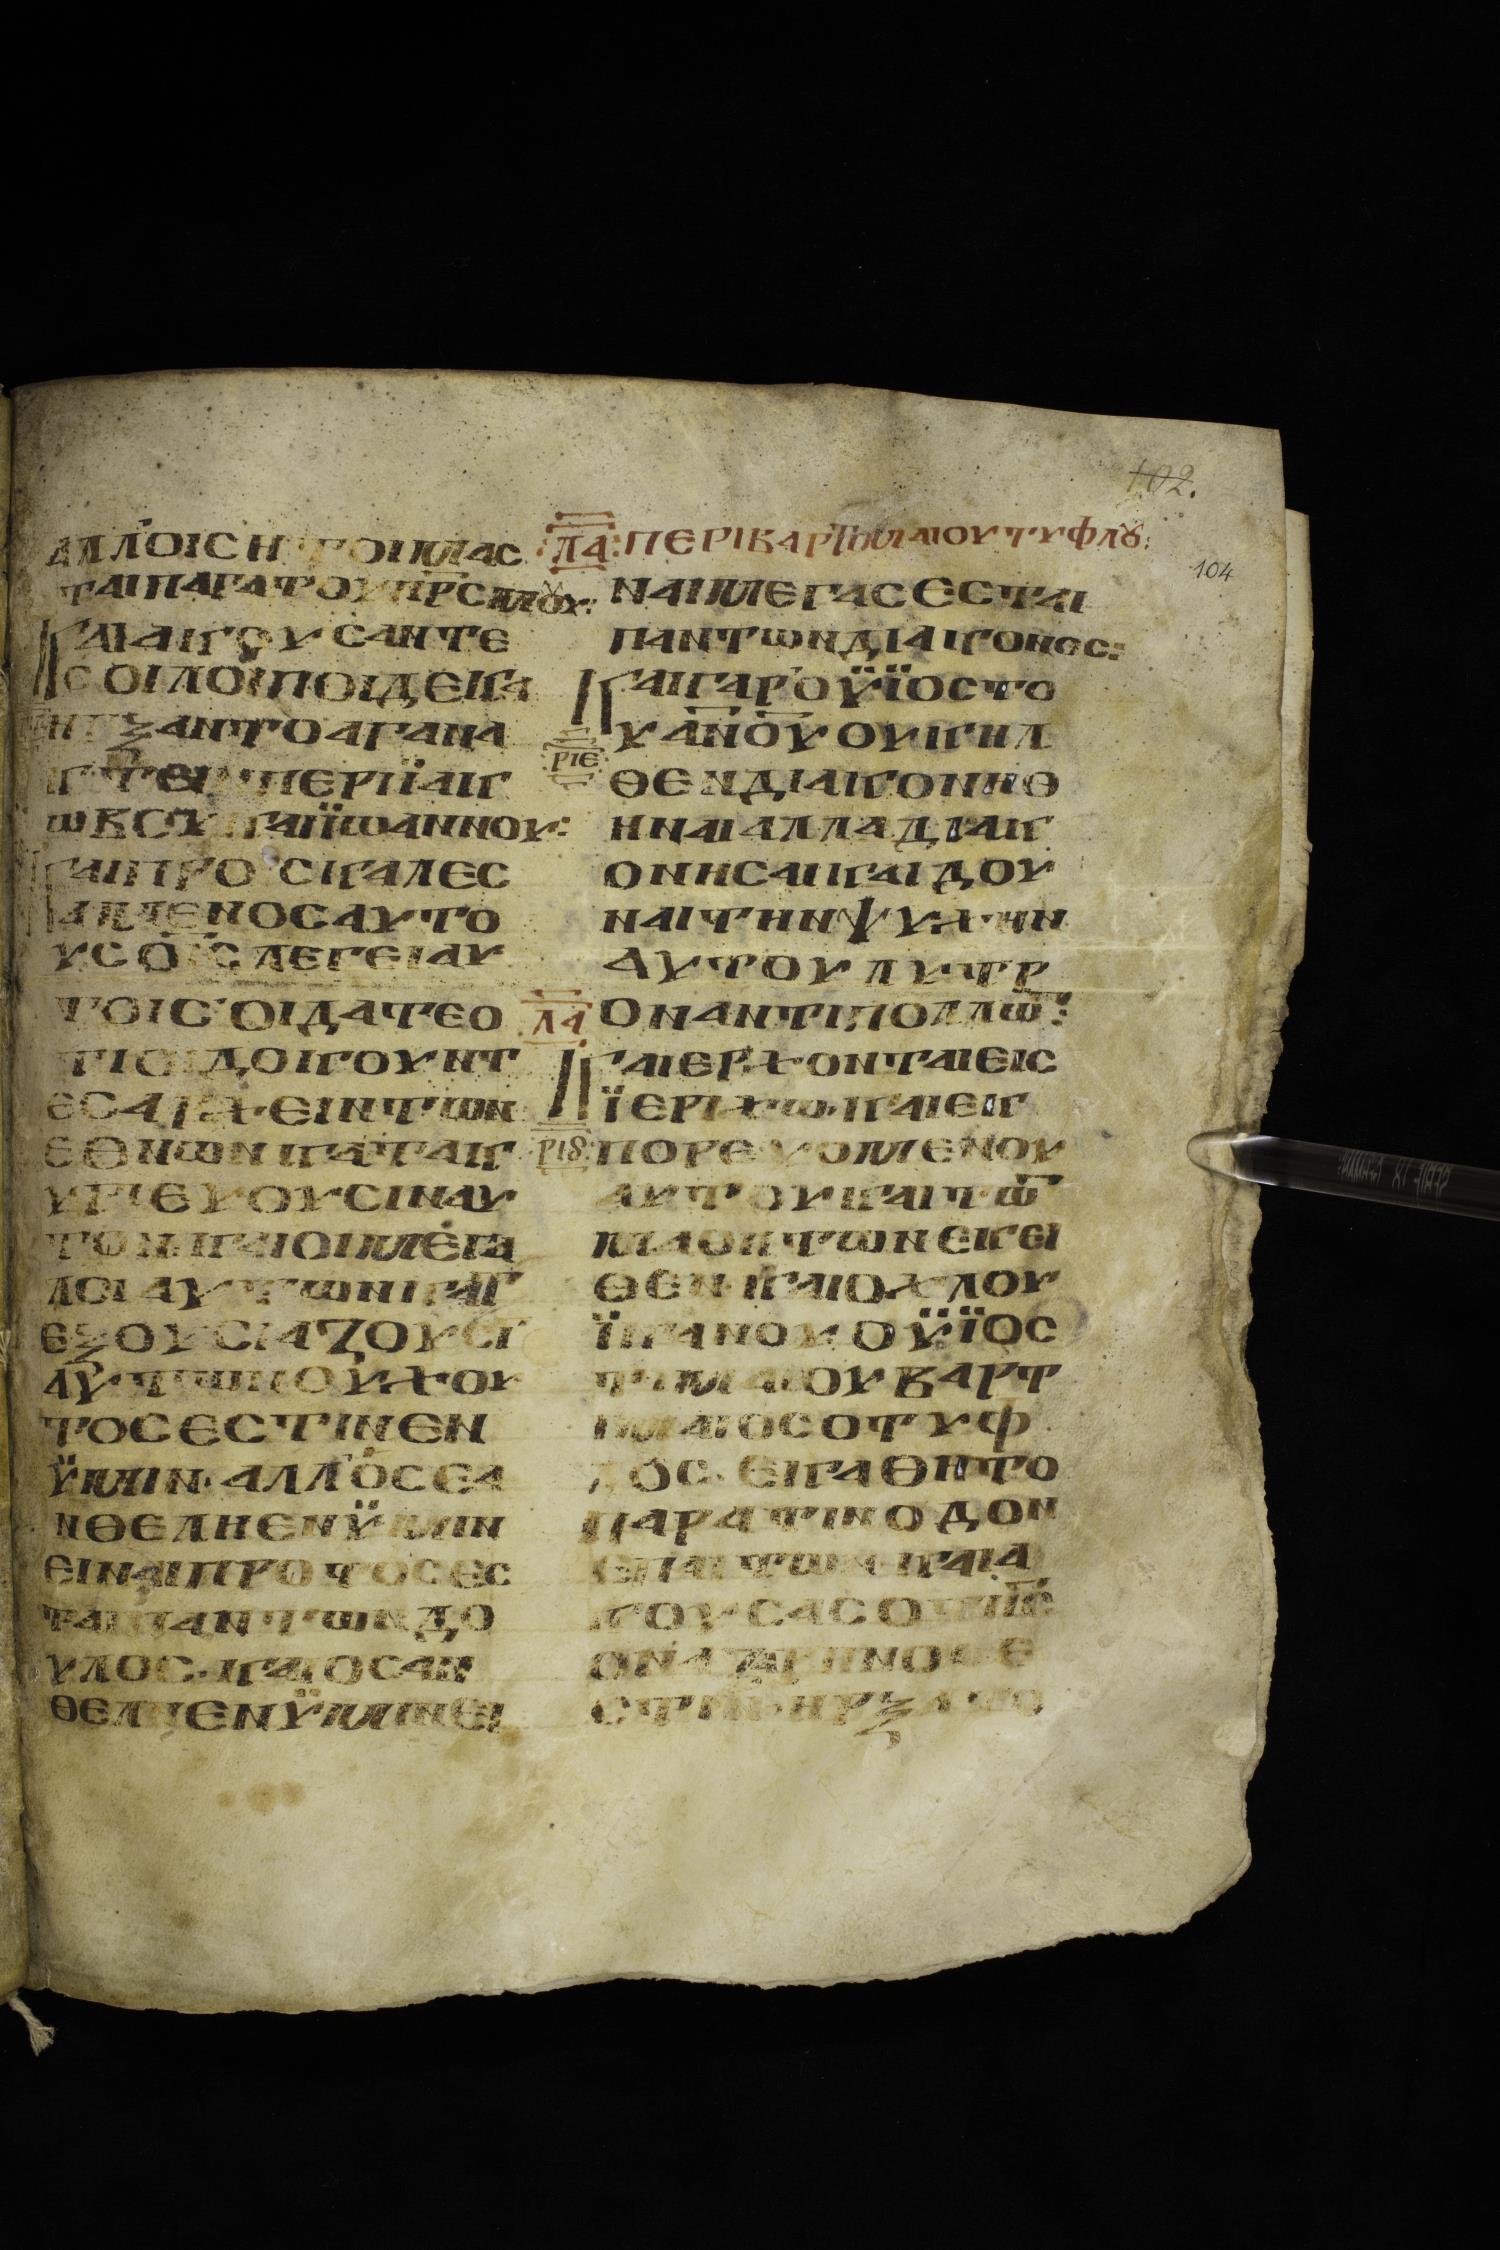 102.
104
:ΛΑ: ΠΕΡΙ ΒΑΡΤΙΜΑΙΟΥ ΤΥΦΛȢ:
ΑΛΛΟΙΣ ΗΤΟΙΜΑΣ
ΤΑΙ ΠΑΡΑ ΤΟΥ ΠΡΣ ΜΟΥ:
ΚΑΙ ΑΚΟΥΣΑΝΤΕ
Σ ΟΙ ΛΟΙΠΟΙ ΔΕΚΑ
ΗΡΞΑΝΤΟ ΑΓΑΝΑ
ΚΤΕΙΝ ΠΕΡΙ ΪΑΚ
ΩΒΟΥ ΚΑΙ ΪΩΑΝΝΟΥ:
ΚΑΙ ΠΡΟΣΚΑΛΕΣ
ΑΜΕΝΟΣ ΑΥΤΟ
ΥΣ Ο ΙΣ ΛΕΓΕΙ ΑΥ
ΤΟΙΣ ΟΙΔΑΤΕ Ο
ΤΙ ΟΙ ΔΟΚΟΥΝΤ
ΕΣ ΑΡΧΕΙΝ ΤΩΝ
ΕΘΝΩΝ ΚΑΤΑΚ
ΥΡΙΕΥΟΥΣΙΝ ΑΥ
ΤΩΝ ΚΑΙ ΟΙ ΜΕΓΑ
ΛΟΙ ΑΥΤΩΝ ΚΑΤ
ΕΞΟΥΣΙΑΖΟΥΣΙ
ΑΥΤΩΝ ΟΥΧ ΟΥ
ΤΟΣ ΕΣΤΙΝ ΕΝ
ΫΜΙΝ· ΑΛΛ ΟΣ ΕΑ
Ν ΘΕΛΗ ΕΝ ΫΜΙΝ
ΕΙΝΑΙ ΠΡΟΤΟΣ ΕΣ
ΤΑΙ ΠΑΝΤΩΝ ΔΟ
ΥΛΟΣ· ΚΑΙ ΟΣ ΑΝ
ΘΕΛΗ ΕΝ ΫΜΙΝ ΕΙ
ΝΑΙ ΜΕΓΑΣ ΕΣΤΑΙ
ΠΑΝΤΩΝ ΔΙΑΚΟΝΟΣ:
ΚΑΙ ΓΑΡ Ο ΫΪΟΣ ΤΟ
Υ ΑΝΟΥ ΟΥΚ ΗΛ
ΡΙΕ
ΘΕΝ ΔΙΑΚΟΝΗΘ
ΗΝΑΙ ΑΛΛΑ ΔΙΑΚ
ΟΝΗΣΑΙ ΚΑΙ ΔΟΥ
ΝΑΙ ΤΗΝ ΨΥΧΗΝ
ΑΥΤΟΥ ΛΥΤΡ
ΛΑ
ΟΝ ΑΝΤΙ ΠΟΛΛΩ:
ΚΑΙ ΕΡΧΟΝΤΑΙ ΕΙΣ
ΪΕΡΙΧΩ· ΚΑΙ ΕΚ
ΡΙϚ
ΠΟΡΕΥΟΜΕΝΟΥ
ΑΥΤΟΥ ΚΑΙ ΤΩ
ΜΑΘΗΤΩΝ ΕΚΕΙ
ΘΕΝ· ΚΑΙ ΟΧΛΟΥ
ΪΚΑΝΟΥ Ο ΫΪΟΣ
ΤΙΜΑΙΟΥ ΒΑΡΤ
ΙΜΑΙΟΣ Ο ΤΥΦ
ΛΟΣ· ΕΚΑΘΗΤΟ
ΠΑΡΑ ΤΙΝ ΟΔΟΝ
ΕΠΑΙΤΩΝ· ΚΑΙ Α
ΚΟΥΣΑΣ ΟΤΙ ΙΣ
Ο ΝΑΖΩΡΗΝΟΣ Ε
ΣΤΙΝ· ΗΡΞΑΤΟ